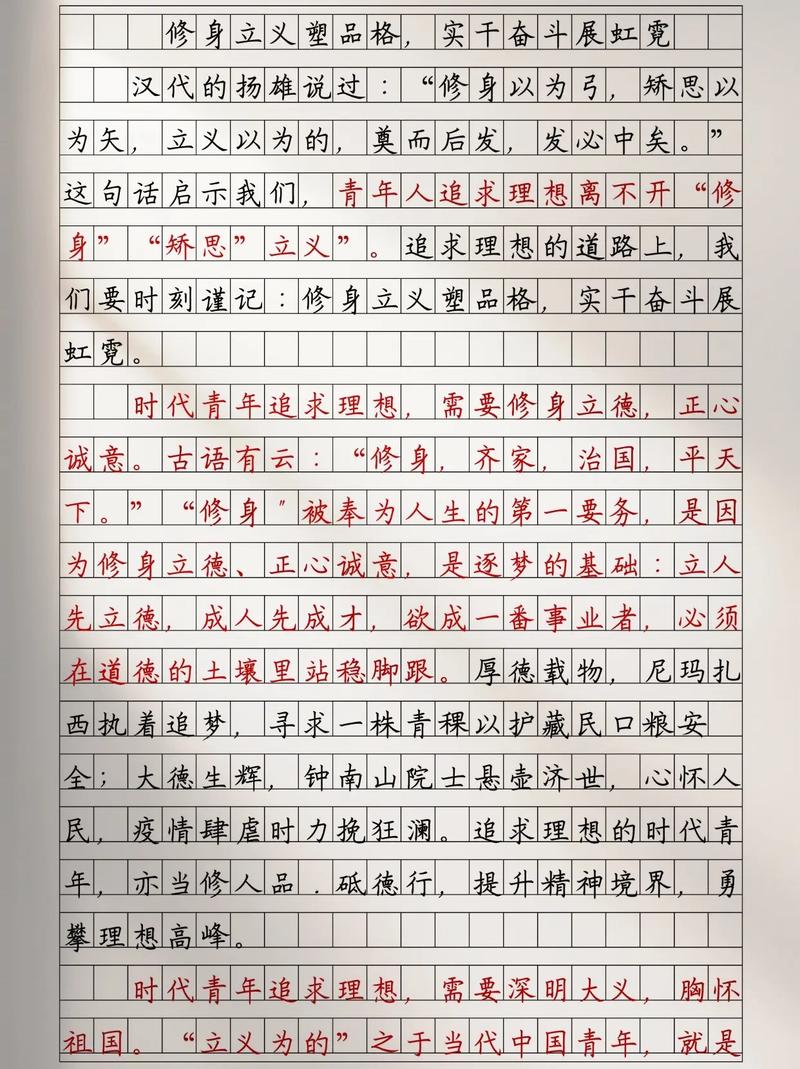 修身立义塑品格，实干奋斗展虹霓
汉代的扬雄说过：“修身以为弓，矫思以
为矢，立义以为的，奠而后发，发必中矣。”
这句话启示我们，青年人追求理想离不开“修
身”“矫思”立义”。追求理想的道路上，我
们要时刻谨记：修身立义塑品格，实干奋斗展
虹霓。
时代青年追求理想，需要修身立德，正心
诚意。古语有云：“修身，齐家，治国，平天
下。”“修身〞被奉为人生的第一要务，是因
为修身立德、正心诚意，是逐梦的基础：立人
先立德，成人先成才，欲成一番事业者，必须
在道德的土壤里站稳脚跟。厚德载物，尼玛扎
西执着追梦，寻求一株青稞以护藏民口粮安
全；大德生辉，钟南山院士悬壶济世，心怀人
民，疫情肆虐时力挽狂澜。追求理想的时代青
年，亦当修人品．砥德行，提升精神境界，勇
攀理想高峰。
时代青年追求理想，需要深明大义，胸怀
祖国。“立义为的”之于当代中国青年，就是